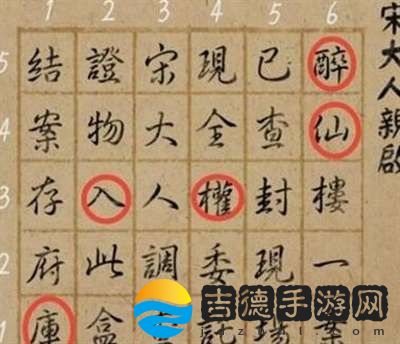 1 2 3 4 5 6
5 結 證 宋 現 已 醉
4 案 物 大 全 查 仙
3 存 入 人 權 封 樓
2 府 此 調 委 現 一
1 庫 盒 案
宋大人親啟
吉德手游网